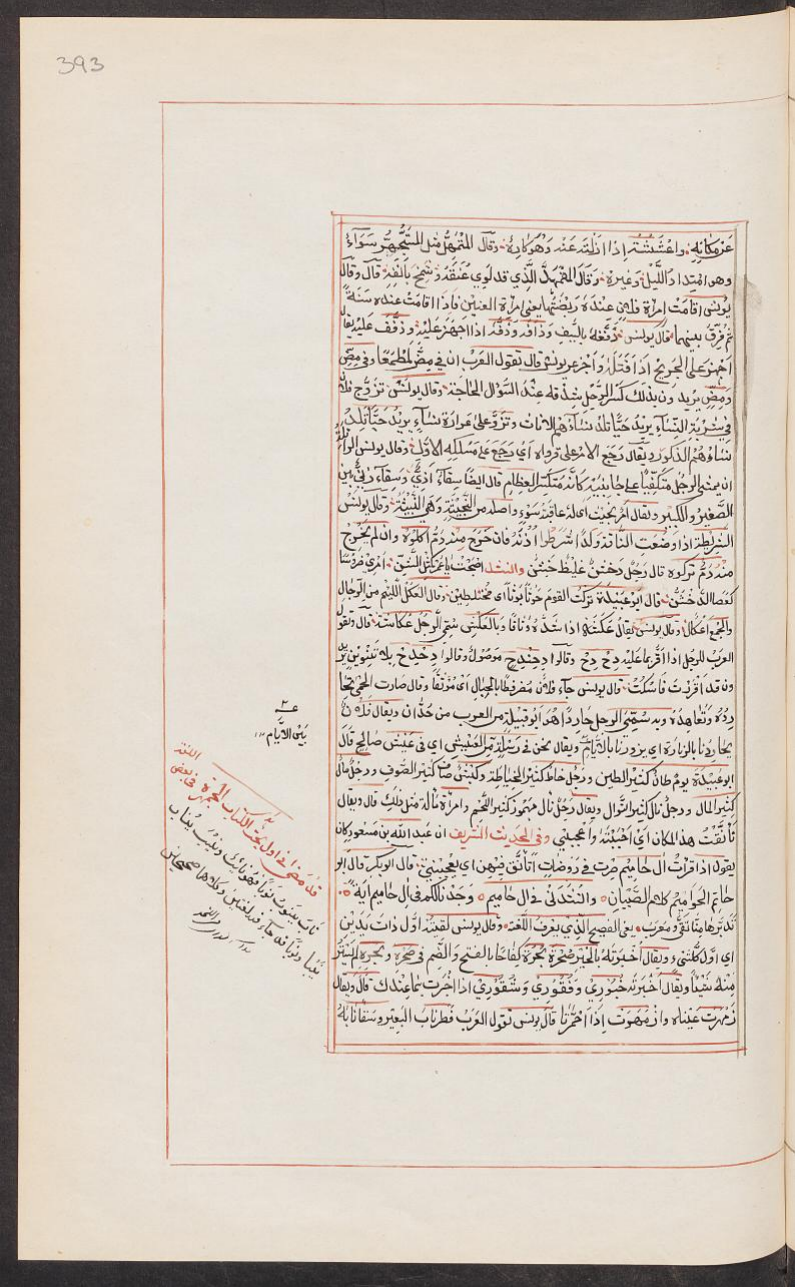 393
عن مكانه واعششته اذا ازلته عنه وهو كاره وقال المتمهل مثل المسجهر سواء
وهو امتداد الليل وغيره وقال المتمهد الذي قد لوي عنقه وشمخ بانفه قال وقال
يونس اقامت امراة فلان عنده ربضتها يعني امراة العنين فاذا اقامت عنده سنة
ثم فرق بينهما قال يونس ذففه بالسيف وذافه وذففه اذا اجهز عليه وذفف عليه يقال
اجهز على الجريح اذا قتله واخبر عن يونس قال تقول العرب ان في مض لمطمعا وفي مض
ومض يريدون بذلك كسر الرجل شدقه عند السؤال الحاجة وقال يونس تزوج فلان
في شرية النساء يريد حيا تلد نساءهم الاناث وتزوج على عرارة نساء يريد حيا تلد
نساءهم الذكور ويقال رجع الامر على قرواه اي رجع على مسلكه الاول وقال يونس
ان يمشي الرجل متكفيا على جانبيه كانه متكسر العظام قال ايضا سقاء ادي وسقاء زني بين
الصغير والكبير ويقال امر نجيث اي له عاقبة سوء واصله من النجيثة وهي النبيثة وقال يونس
الشريطة اذا وضعت الناقة ولدا شرطوا اذنه فان خرج منه دم اكلوه وان لم يخرج
منه دم تركوه قال رجل دخشن غليظ خشن وانشد اصبحت يا عمرو كمثل الشن امري ضروسا
كعصا الدخشن قال ابو عبيدة تركت القوم حوثا بوثا اي مختلطين وقال العكل اللئيم من الرجال
والجمع اعكال وقال يونس يقال عكشه اذا شده وثاقا وبالعكش سمي الرجل عكاشة قال وتقول
العرب للرجل اذا اقر بما عليه دح دح وقالوا دحندح موصول وقالوا دح دح بلا تنوين يريد
ون قد اقررت فاسكت قال يونس جاء فلان مضرفطا بالحبال اي موثقا وقال صارت الحمى تحا
رده وتعاهده وبه سمي الرجل حاردا هو ابو قبيلة من العرب من حدان ويقال فلان
يخاردنا بالزيارة اي يزورنا بالايام ويقال نحن في رسلة من العيش اي في عيش صالح قال
ابو عبيدة يوم طان كثير الطين ورجل خاط كثير الخياطة وكبش صاف كثير الصوف ورجل مال
كثير المال ورجل نال كثير النوال ويقال رجل نال مهموز كثير اللحم وامراة نالة مثل ذلك قال ويقال
تانقت هذا المكان اي احببته واعجبني وفي الحديث الشريف ان عبد الله بن مسعود كان
يقول اذا قرات ال حاميم صرت في روضات اتانق فيهن اي يعجبنني قال ابو بكر قال ابو
حاتم الحواميم كلام الصبيان وانشدني في ال حاميم وجدنا لكم في ال حاميم اية
تدبرها منا تقي ومعرب يعني الفصيح الذي يعرف اللغة وقال يونس لقيته اول ذات يدين
اي اول كل شيء ويقال اخبرته بالخبر صحرة بحرة كفاحا بالفتح والضم في صحرة وبحرة لم يستر
منه شيئا ويقال اخبرته خبوري وفقوري وشقوري اذا اخبرت بما عندك قال ويقال
زمهرت عيناه وازمهرت اذا احمرتا قال يونس تقول العرب فطر ناب البعير وشقا نابه
بين الايام
قد مضى في اول بحث الكتاب
ناب ينوب نوبا فهو نائب